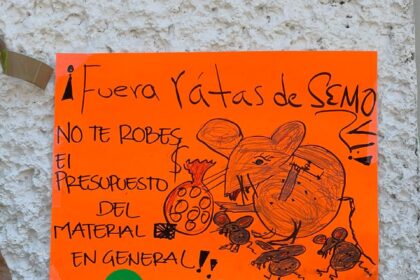 ¡Fuera rátas de SEMOVI!!
NO TE ROBES
El
PRESUPUESTO
DEL
MATERIAL
EN GENERAL!!
$